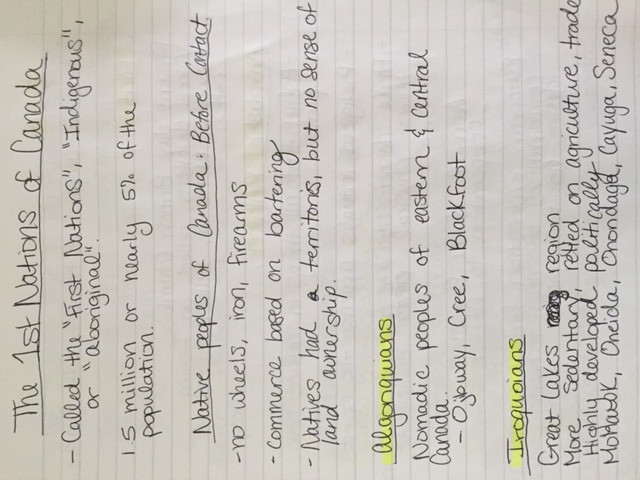 The 1st Nations of Canada
- Called the "First Nations", "Indigenous",
or "aboriginal".
1.5 million or nearly 5% of the
population.
Native peoples of Canada: Before Contact
- no wheels, iron, firearms
- Commerce based on bartering
- Natives had a territories, but no sense of
land ownership.
Algonquians
Nomadic peoples of eastern & central
Canada.
- Ojibway, Cree, Blackfoot
Iroquoians
Great Lakes region
More Sedentary, relied on agriculture, trade
Highly developed politically
Mohawk, Oneida, Onondaga, Cayuga, Seneca